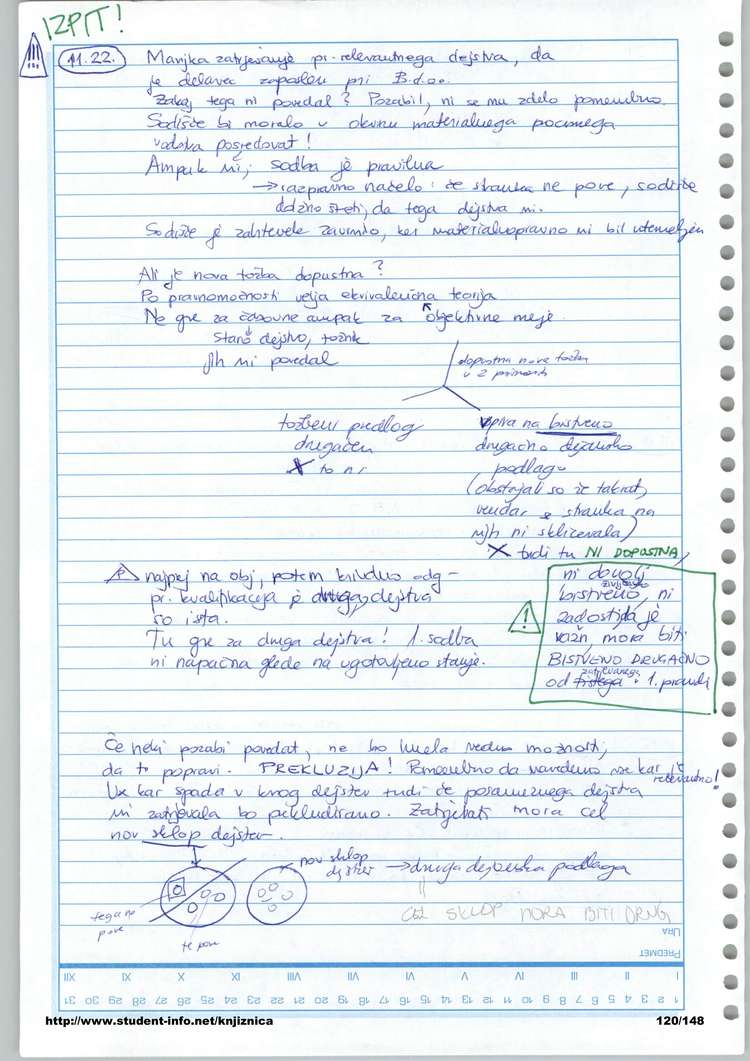 IZPIT!
11.22. Manjka zatrjevanje pr. relevantnega dejstva, da
je delavec zaposlen pri B.d.o.o.
Zakaj tega ni povedal? Pozabil, ni se mu zdelo pomembno.
Sodišče bi moralo v okviru materialnega pocesnega
vodstva posredovat!
Ampak ni, sodba je pravilna
→ razpravno načelo: če stranka ne pove, sodišče
dolžno šteti, da tega dejstva ni.
Sodišče je zahtevek zavrnilo, ker materialnopravno ni bil utemeljen
Ali je nova tožba dopustna?
Po pravnomočnosti velja ekvivalenčna teorija
Ne gre za časovne ampak za objektivne meje.
staro dejstvo, tožnik
jih ni povedal
dopustna nova tožba
v 2 primerih
tožbeni predlog
drugačen
X to ni
opira na bistveno
drugačno dejansko
podlago
(obstajali so že takrat,
vendar se stranka na
njih ni sklicevala)
X tudi tu NI DOPUSTNA
najprej na obj, potem
pr. kvalifikacija je druga, dejstva
so ista.
Tu gre za druga dejstva! 1. sodba
ni napačna glede na ugotovljeno stanje.
ni dovolj
življenjsko
bistveno, ni
zadosti, da je
važn, mora biti
BISTVENO DRUGAČNO
zatrjevanega
od tistega v 1. pravdi
!
Če nekdo pozabi povedat, ne bo imela vedno možnosti,
da to popravi. PREKLUZIJA! Pomembno da navedemo vse kar je
relevantno!
Vse kar spada v krog dejstev tudi če posameznega dejstva
ni zatrjevala bo prekludirano. Zatrjevati mora cel
nov sklop dejstev.
nov sklop
dejstev → druga dejanska podlaga
tega ne
pove
te pove
Cel SKLOP MORA BITI DRUG
URA
PREDMET
I II III IV V VI VII VIII IX X XI XII
1 2 3 4 5 6 7 8 9 10 11 12 13 14 15 16 17 18 19 20 21 22 23 24 25 26 27 28 29 30 31
http://www.student-info.net/knjiznica
120/148